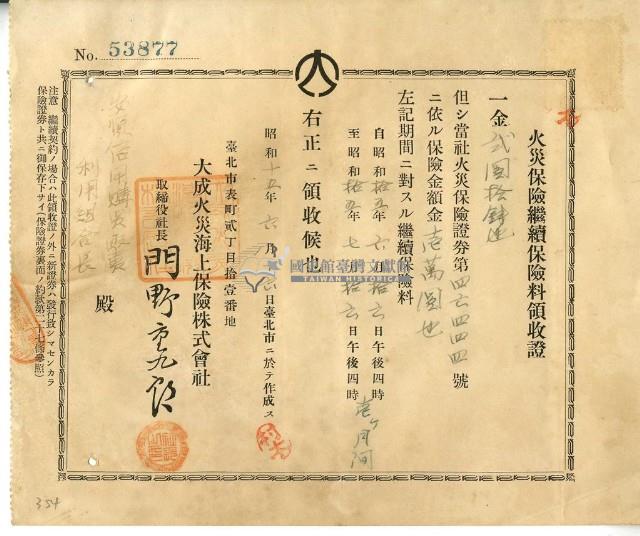 No. 53877
火災保險繼續保險料領收證
一金貳圓拾錢也
但シ當社火災保險證券第四六四四四號
ニ依ル保險金額金壱萬圓也
左記期間ニ對スル繼續保險料
自昭和拾五年六月拾六日午後四時
至昭和拾五年七月拾六日午後四時
壱ヶ月間
右正ニ領收候也
昭和十五年六月 日臺北市ニ於テ作成ス
臺北市表町貳丁目拾壹番地
大成火災海上保險株式會社
取締役社長
門野重九郎
利用組合長
殿
注意 繼續契約ノ場合ハ此領收證ノ外ニ新證券ハ發行致シマセンカラ
保險證券ト共ニ御保存下サイ(保險證券裏面ノ約款第二十七條參照)
國史館臺灣文獻館
TAIWAN HISTORICA
354